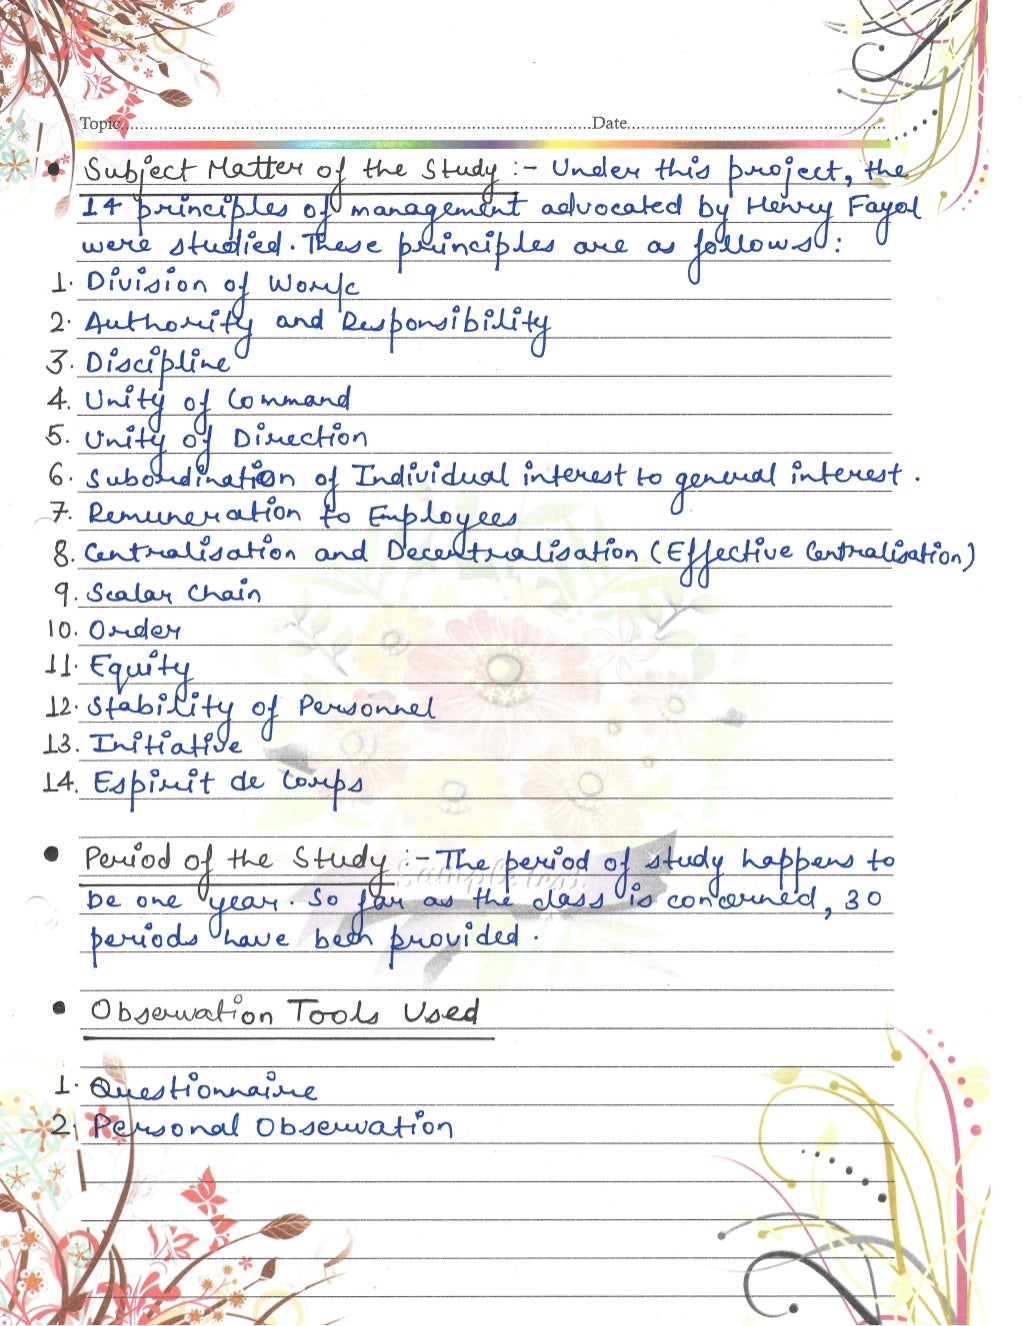 Topic Date
• Subject Matter of the Study :- Under this project, the
14 principles of management advocated by Henry Fayol
were studied. These principles are as follows :
1. Division of Work
2. Authority and Responsibility
3. Discipline
4. Unity of Command
5. Unity of Direction
6. Subordination of Individual interest to general interest.
7. Remuneration to Employees
8. Centralisation and Decentralisation (Effective Centralisation)
9. Scalar Chain
10. Order
11. Equity
12. Stability of Personnel
13. Initiative
14. Espirit de Corps
• Period of the Study :- The period of study happens to
be one year. So far as the class is concerned, 30
periods have been provided.
• Observation Tools Used
1. Questionnaire
2. Personal Observation